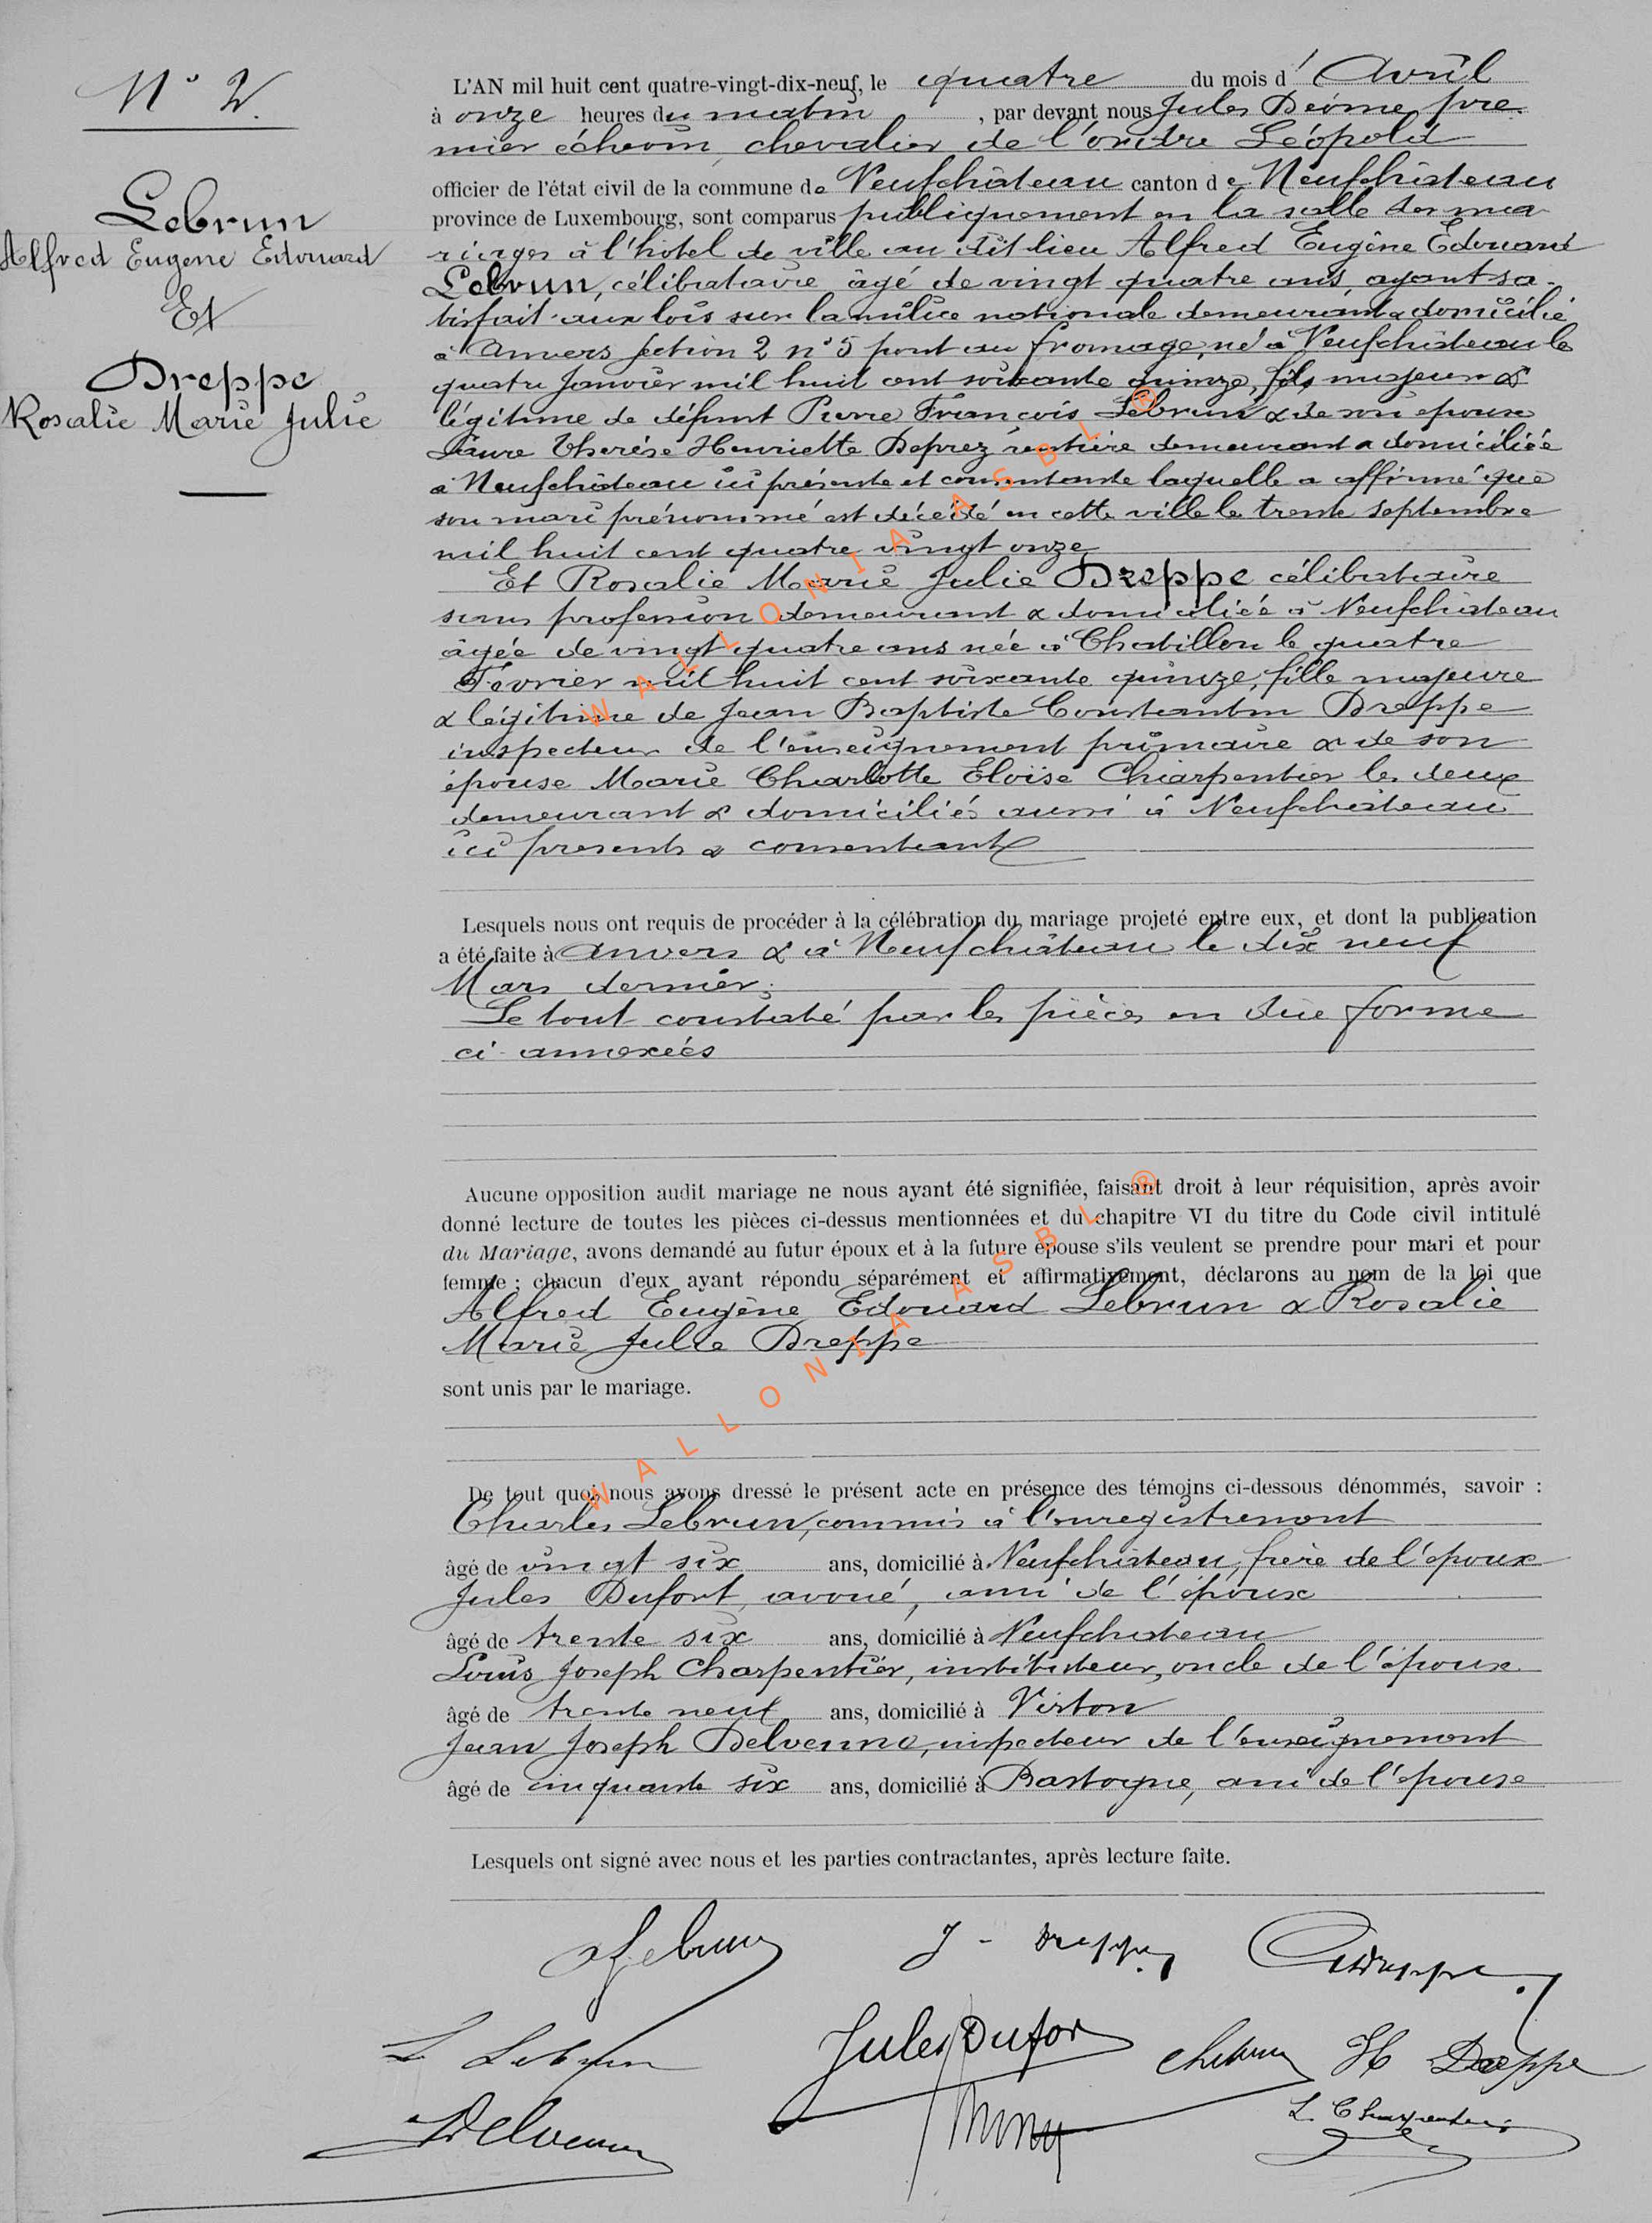 N° 2.
Lebrun
Alfred Eugène Edouard
Et
Dreppe
Rosalie Marie Julie
L'AN mil huit cent quatre-vingt-dix-neuf, le quatre du mois d' Avril
à onze heures du matin, par devant nous Jules Deome pre
mier échevin, chevalier de l'ordre Léopold
officier de l'état civil de la commune de Neufchâteau canton de Neufchâteau
province de Luxembourg, sont comparus publiquement en la salle des ma
riages à l'hotel de ville au dit lieu Alfred Eugène Edouard
Lebrun, célibataire âgé de vingt quatre ans, ayant sa-
tisfait aux lois sur la milice nationale demeurant & domicilié
à Anvers section 2 n° 5 pont au fromage, né à Neufchâteau le
quatre Janvier mil huit cent soixante quinze, fils majeur &
légitime de défunt Pierre François Lebrun & de son epouse
Laure Thérèse Henriette Deprez rentière demeurant & domiciliée
à Neufchâteau ici présente et consentante laquelle a affirmé que
son mari prénommé est décédé en cette ville le trente septembre
mil huit cent quatre vingt onze
Et Rosalie Marie Julie Dreppe célibataire
sans profession demeurant & domiciliée à Neufchâteau
âgée de vingt quatre ans née à Chatillon le quatre
Février mil huit cent soixante quinze, fille majeure
& légitime de Jean Baptiste Constantin Dreppe
inspecteur de l'enseignement primaire & de son
épouse Marie Charlotte Eloïse Charpentier les deux
demeurant & domiciliés aussi à Neufchâteau
ici presents & consentants
Lesquels nous ont requis de procéder à la célébration du mariage projeté entre eux, et dont la publication
a été faite à Anvers & à Neufchâteau le dix neuf
Mars dernier;
Le tout constaté par les pièces en due forme
ci-annexées
Aucune opposition audit mariage ne nous ayant été signifiée, faisant droit à leur réquisition, après avoir
donné lecture de toutes les pièces ci-dessus mentionnées et du chapitre VI du titre du Code civil intitulé
du Mariage, avons demandé au futur époux et à la future épouse s'ils veulent se prendre pour mari et pour
femme ; chacun d'eux ayant répondu séparément et affirmativement, déclarons au nom de la loi que
Alfred Eugène Edouard Lebrun & Rosalie
Marie Julie Dreppe
sont unis par le mariage.
De tout quoi nous avons dressé le présent acte en présence des témoins ci-dessous dénommés, savoir :
Charles Lebrun, commis à l'enregistrement
âgé de vingt six ans, domicilié à Neufchâteau, frère de l'époux
Jules Dufort, avoué, ami de l'époux
âgé de trente six ans, domicilié à Neufchateau
Louis Joseph Charpentier, instituteur, oncle de l'épouse
âgé de trente neuf ans, domicilié à Virton
Jean Joseph Delvenne, inspecteur de l'enseignement
âgé de cinquante six ans, domicilié à Bastogne, ami de l'epouse
Lesquels ont signé avec nous et les parties contractantes, après lecture faite.
ALebrun J - Dreppe CDreppe
L Lebrun Jules Dufort ChLebrun H Dreppe
Delvenne L. Charpentier
WALLONIA ASBL ®
WALLONIA ASBL ®